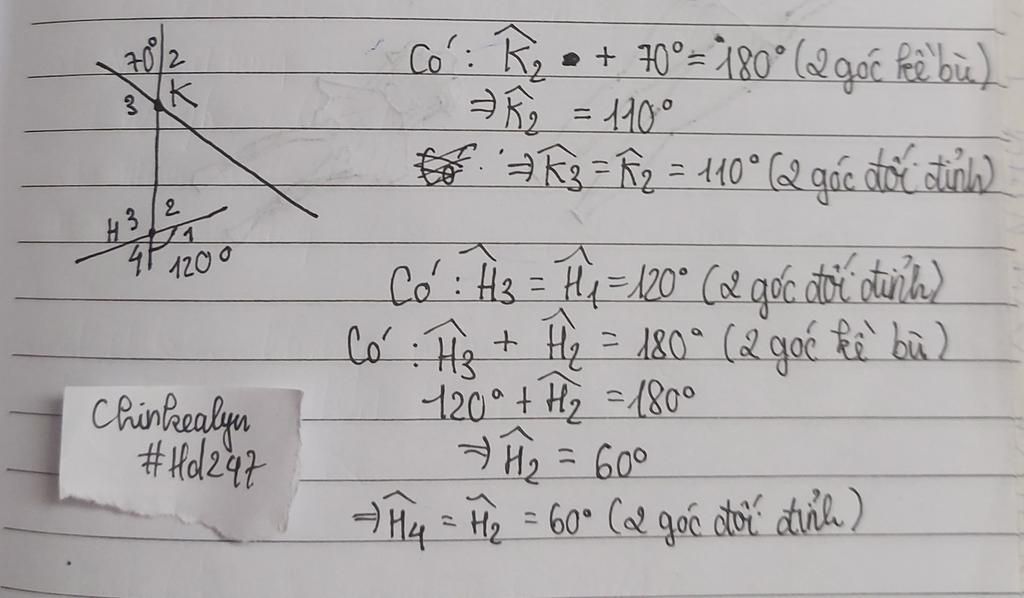 70° 2
3 K
Có: K̂2 + 70° = 180° (2 góc kề bù)
⇒ K̂2 = 110°
⇒ K̂3 = K̂2 = 110° (2 góc đối đỉnh)
H 3 2
4 1 120°
Có: Ĥ3 = Ĥ1 = 120° (2 góc đối đỉnh)
Có: Ĥ3 + Ĥ2 = 180° (2 góc kề bù)
120° + Ĥ2 = 180°
⇒ Ĥ2 = 60°
⇒ Ĥ4 = Ĥ2 = 60° (2 góc đối đỉnh)
Chinkealyn
#Hd247